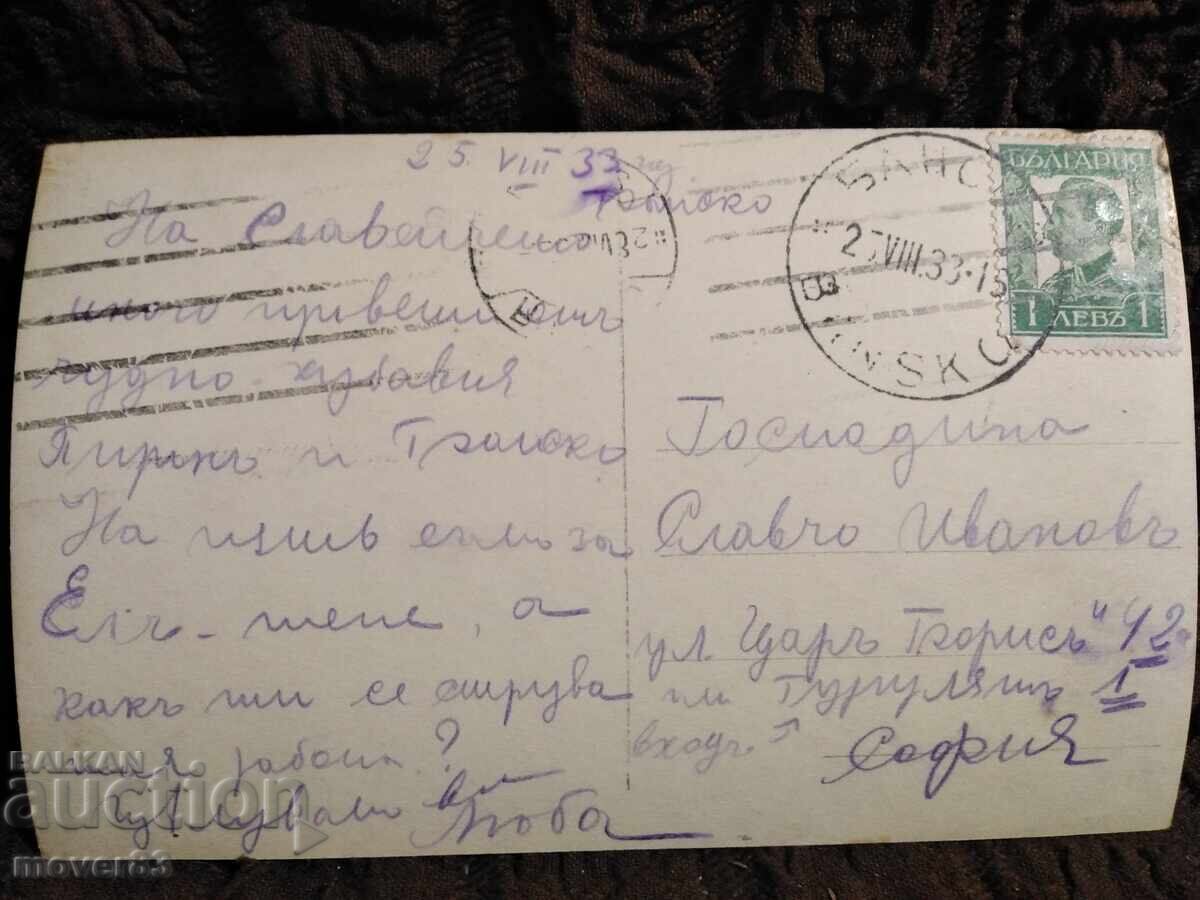 25 VIII 33
Банско
На Славейченцо
много приветъ отъ
чудно хубавия
Пиринъ и Банско
На пжть сме за
Елъ-тепе, а
какъ ти се струва
тая работа?
Цѣлувамъ ви
Люба
БАНСКО
25 VIII.33-15
BANSKO
БЪЛГАРИЯ
1 ЛЕВЪ 1
Господина
Славчо Ивановъ
ул. Царъ Борисъ" 42
гл. Гургулятъ 1
входъ
София
BALKAN
auction
mover83